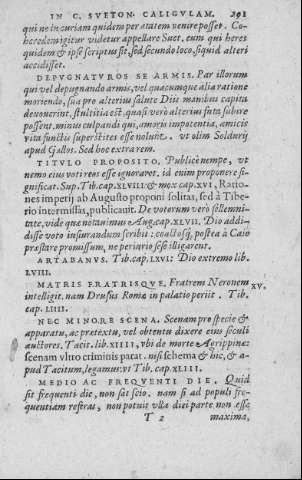 IN C. SVETON. CALIGVLAM. 291
qui ne in curiam quidem per ætatem venire posset. Co-
heredem igitur videtur appellare Suet. eum qui heres
quidem & ipse scriptus sit, sed secundo loco, siquid alteri
accidisset.
DEPVGNATVROS SE ARMIS. Par illorum
qui vel depugnando armis, vel quacumque alia ratione
moriendo, sua pro alterius salute Diis manibus capita
devouerint. stultitia est, quasi verò alterius fata subire
possent, minus culpanda qui, amoris impotentia, amicis
vita functis superstites esse nolunt. vt olim Soldurij
apud Gallos. Sed hoc extra rem.
TITVLO PROPOSITO. Publicè nempe, vt
nemo eius votireos esse ignoraret. id enim proponere si-
gnificat. Sup. Tib. cap. XLVIII: & mox cap. XVI, Ratio-
nes imperij ab Augusto proponi solitas, sed à Tibe-
rio intermissas, publicauit. De votorum verò sollemni-
tate, vide quæ notauimus Aug. cap. XLVII. Dio addi-
disse voto iusiurandum scribit: coactosq́, postea à Caio
præstare promissum, ne periurio sese illigarent.
ARTABANVS. Tib. cap. LXVI: Dio extremo lib.
LVIII.
MATRIS FRATRISQVE. Fratrem Neronem XV.
intelligit. nam Drusus Romæ in palatio periit. Tib.
cap. LIIII.
NEC MINORE SCENA. Scenam pro specie &
apparatu, ac prætextu, vel obtentu dixere eius sæculi
auctores. Tacit. lib. XIIII, vbi de morte Agrippinæ:
scenam vltro criminis parat. nisi schema & hic, & a-
pud Tacitum, legamus: vt Tib. cap. XLIII.
MEDIO AC FREQVENTI DIE. Quid
sit frequenti die, non sat scio. nam si ad populi fre-
quentiam referas, non potuit vlla diei parte non esse
T 2 maxima,